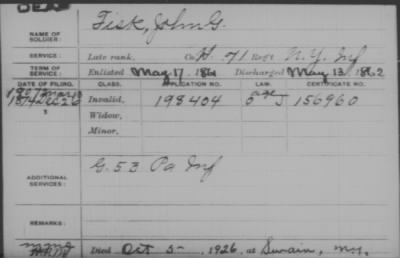 DEAD
NAME OF SOLDIER: Fisk, John G.
SERVICE: Late rank, Co. H. 71 Reg't N.Y. Inf
TERM OF SERVICE: Enlisted May 17, 1861 Discharged May 13, 1862
DATE OF FILING. CLASS. APPLICATION NO. LAW. CERTIFICATE NO.
1907 Mar
1874 Dec 26 Invalid, 198404 age J 156960
Widow,
Minor,
ADDITIONAL SERVICES: G. 53 Pa Inf
REMARKS:
Died Oct 5, 1926, at Swain, N.Y.